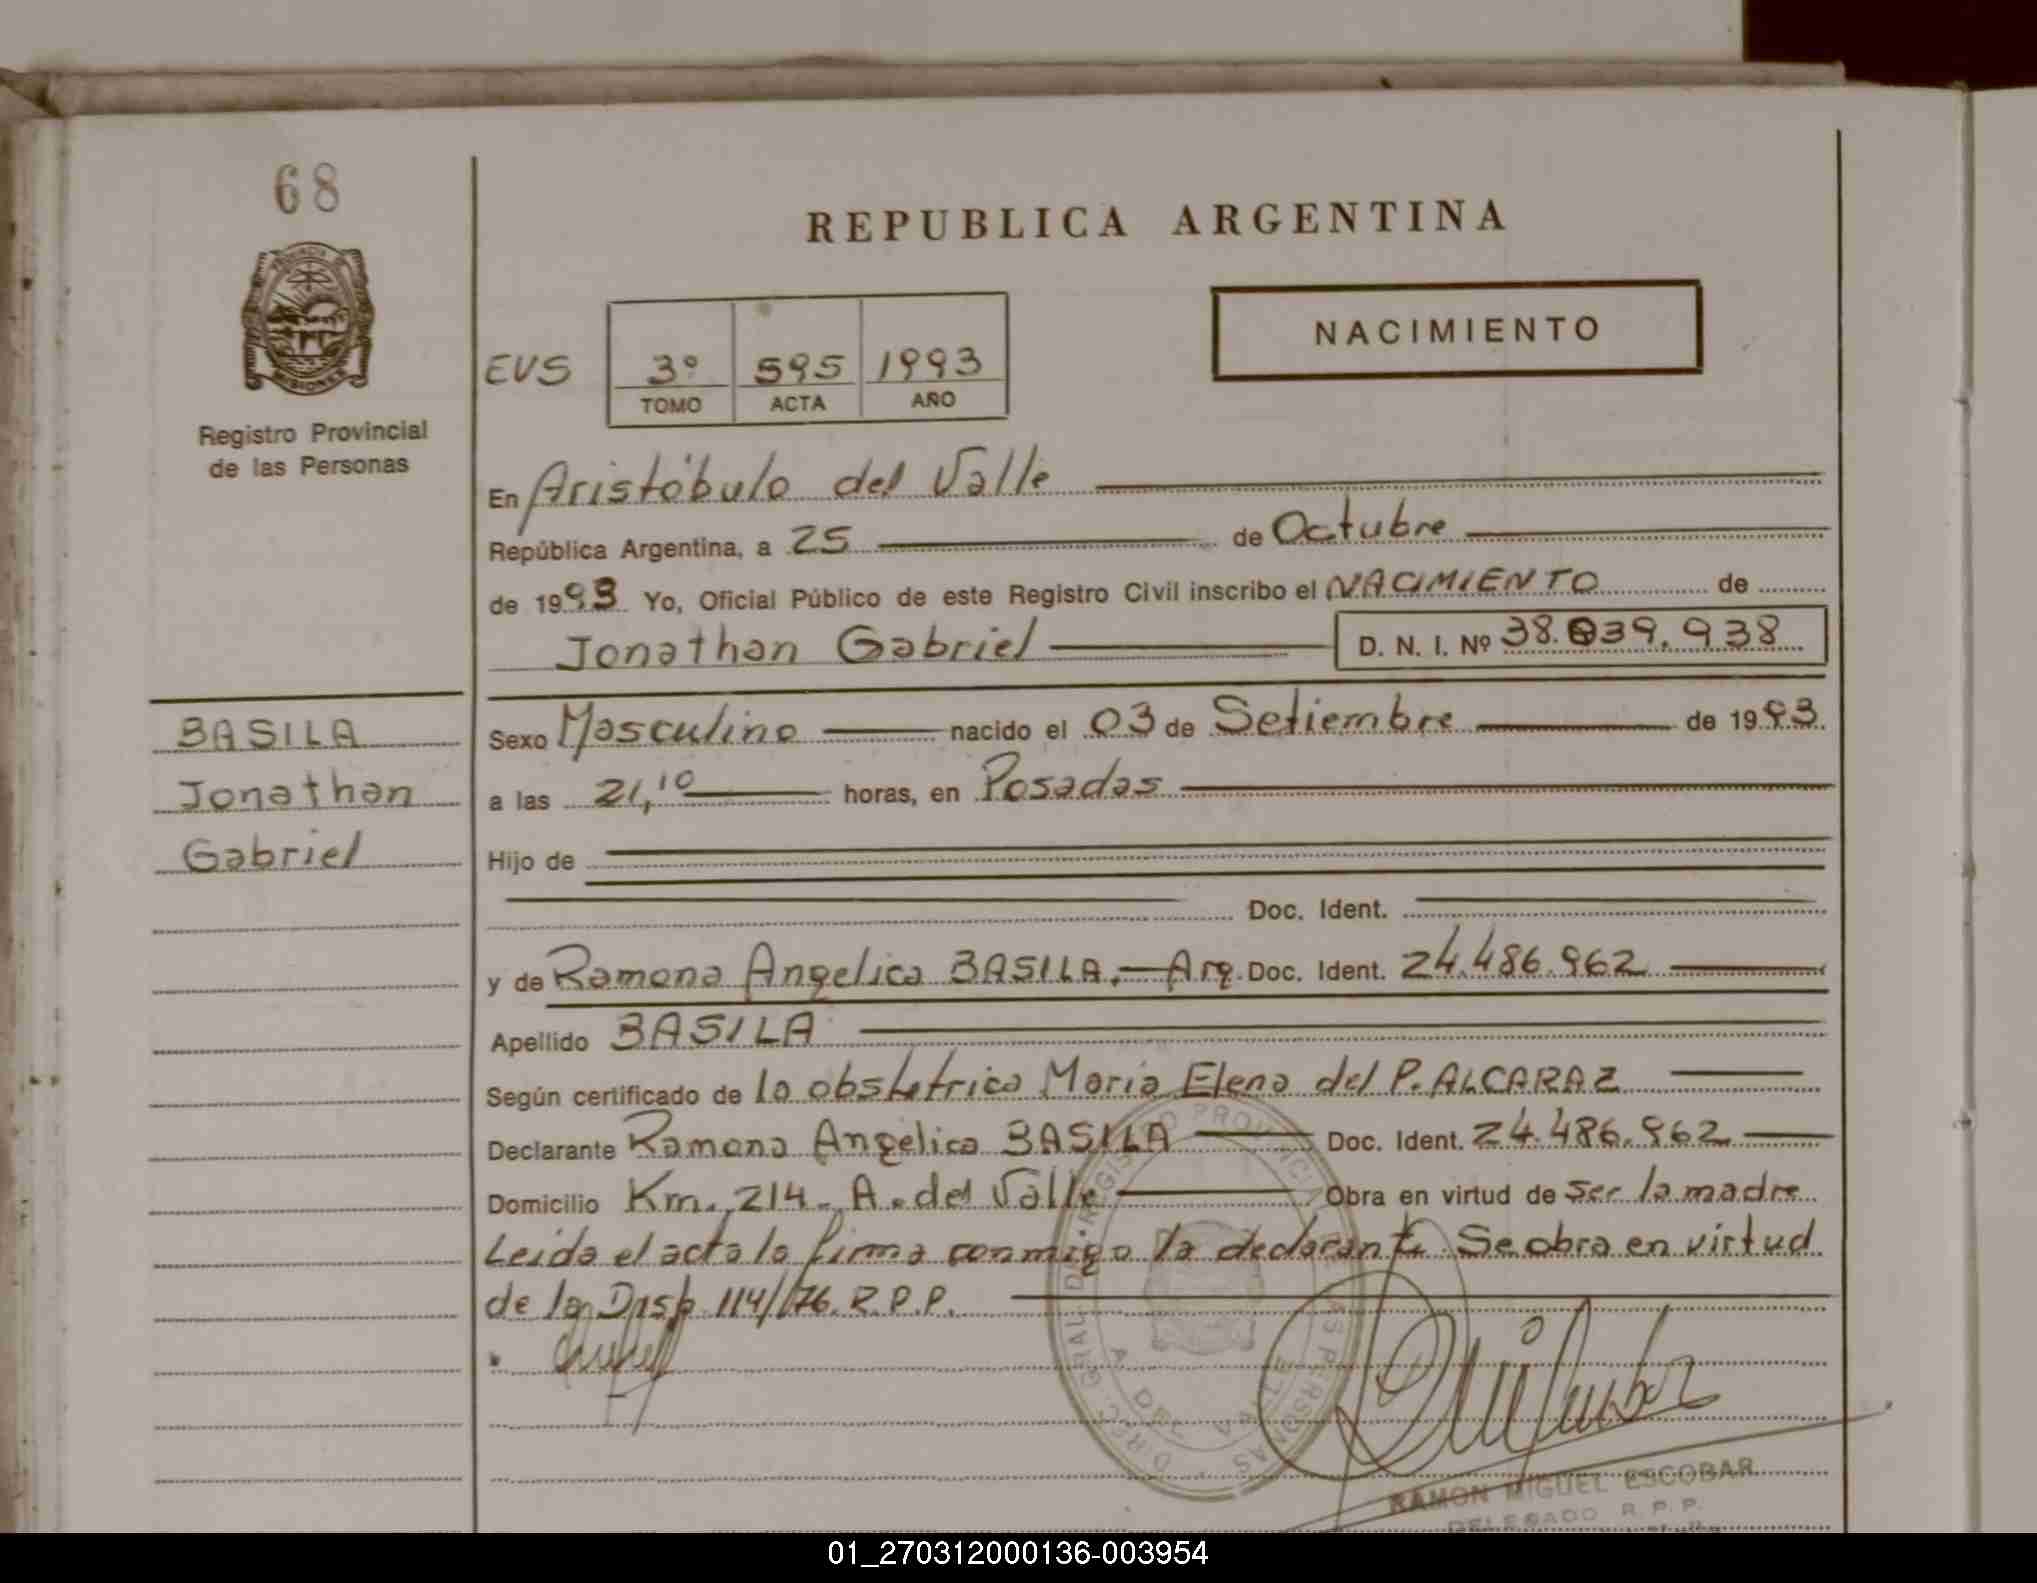 68
REPUBLICA ARGENTINA
NACIMIENTO
PROVINCIA DE
MISIONES
Registro Provincial
de las Personas
EVS 3º 595 1993
TOMO ACTA AÑO
En Aristóbulo del Valle
República Argentina, a 25 de Octubre
de 1993 Yo, Oficial Público de este Registro Civil inscribo el NACIMIENTO de
Jonathan Gabriel D. N. I. Nº 38.039.938
BASILA
Jonathan
Gabriel
Sexo Masculino nacido el 03 de Setiembre de 1993
a las 21,10 horas, en Posadas
Hijo de
Doc. Ident.
y de Ramona Angelica BASILA.- Arg. Doc. Ident. 24.486.962
Apellido BASILA
Según certificado de la obstetrica Maria Elena del P. ALCARAZ
Declarante Ramona Angelica BASILA Doc. Ident. 24.486.962
Domicilio Km. 214 - A. del Valle Obra en virtud de ser la madre
Leida el acta la firma conmigo la declarante. Se obra en virtud
de la Disp. 114/76. R.P.P.
RAMON MIGUEL ESCOBAR
DELEGADO R. P. P.
01_270312000136-003954